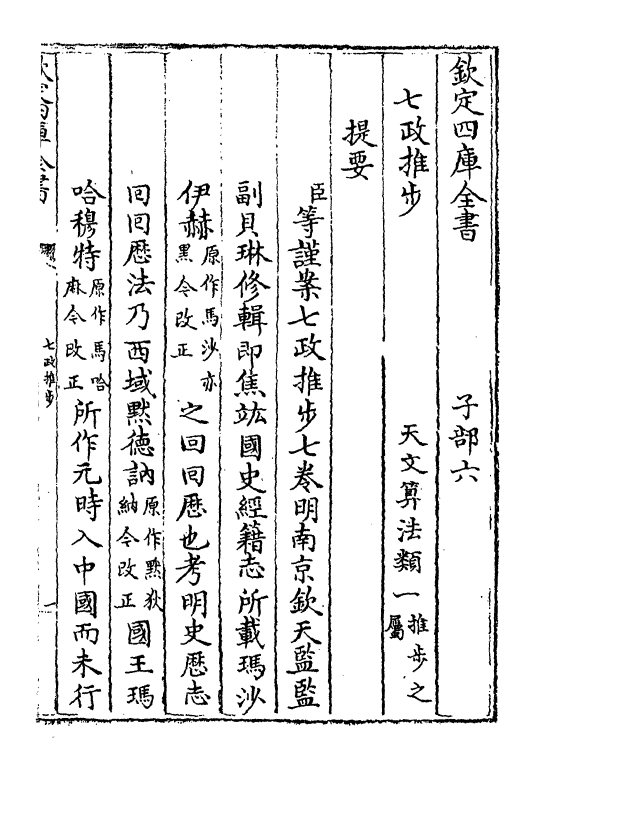 欽定四庫全書　子部六
七政推步　天文算法類一推步之屬
提要
臣等謹案七政推步七卷明南京欽天監監
副貝琳修輯即焦竑國史經籍志所載瑪沙
伊赫原作馬沙亦黑今改正之回回厯也考明史厯志
回回厯法乃西域黙德訥原作黙狄納今改正國王瑪
哈穆特原作馬哈麻今改正所作元時入中國而未行
欽定四庫全書　七政推步　一